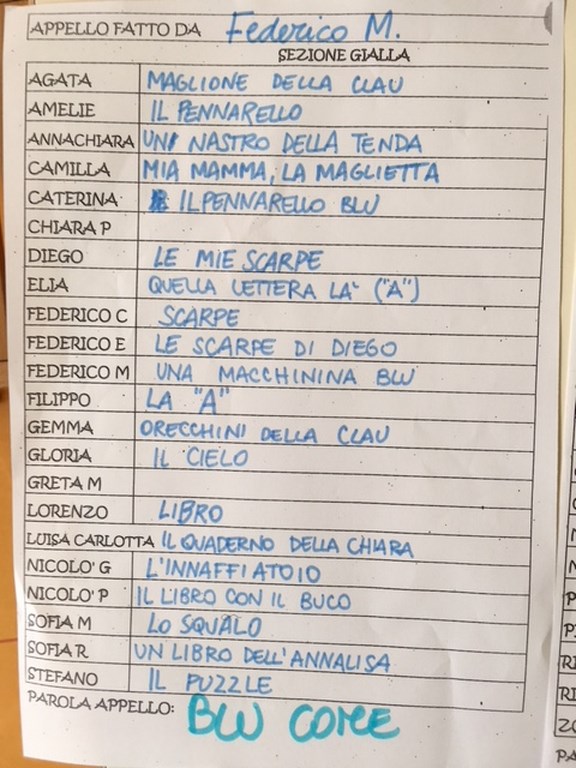 APPELLO FATTO DA Federico M.
SEZIONE GIALLA
AGATA MAGLIONE DELLA CLAU
AMELIE IL PENNARELLO
ANNACHIARA UN NASTRO DELLA TENDA
CAMILLA MIA MAMMA, LA MAGLIETTA
CATERINA IL PENNARELLO BLU
CHIARA P
DIEGO LE MIE SCARPE
ELIA QUELLA LETTERA LA' ("A")
FEDERICO C SCARPE
FEDERICO E LE SCARPE DI DIEGO
FEDERICO M UNA MACCHININA BLU
FILIPPO LA "A"
GEMMA ORECCHINI DELLA CLAU
GLORIA IL CIELO
GRETA M
LORENZO LIBRO
LUISA CARLOTTA IL QUADERNO DELLA CHIARA
NICOLO' G L'INNAFFIATOIO
NICOLO' P IL LIBRO CON IL BUCO
SOFIA M LO SQUALO
SOFIA R UN LIBRO DELL'ANNALISA
STEFANO IL PUZZLE
PAROLA APPELLO: BLU COME